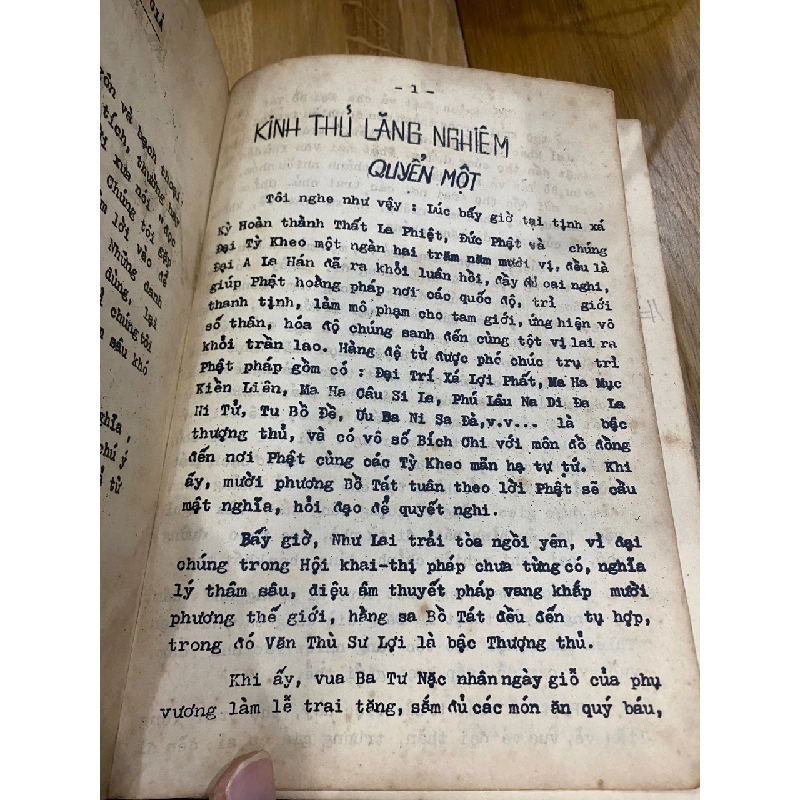 ốn và bạch thoại
tích, thường
xưa nói "đọc
Chúng tôi gặp
lời vào để
Những danh
dùng, lại
chúng tôi
sâu khó
nghĩa,
chú ý
tử
- 1 -
KINH THỦ LĂNG NGHIÊM
QUYỂN MỘT
Tôi nghe như vậy : Lúc bấy giờ tại tịnh xá
Kỳ Hoàn thành Thất La Phiệt, Đức Phật và chúng
Đại Tỳ Kheo một ngàn hai trăm năm mươi vị, đều là
Đại A La Hán đã ra khỏi luân hồi, đầy đủ oai nghi,
giúp Phật hoằng pháp nơi các quốc độ, trì giới
thanh tịnh, làm mô phạm cho tam giới, ứng hiện vô
số thân, hóa độ chúng sanh đến cùng tột vị lai ra
khỏi trần lao. Hàng đệ tử được phó chúc trụ trì
Phật pháp gồm có : Đại Trí Xá Lợi Phất, Ma Ha Mục
Kiền Liên, Ma Ha Câu Si La, Phú Lâu Na Di Đa La
Ni Tử, Tu Bồ Đề, Ưu Ba Ni Sa Đà,v.v... là bậc
thượng thủ, và có vô số Bích Chi với môn đồ đồng
đến nơi Phật cùng các Tỳ Kheo mãn hạ tự tứ. Khi
ấy, mười phương Bồ Tát tuân theo lời Phật sẽ cầu
mật nghĩa, hỏi đạo để quyết nghi.
Bấy giờ, Như Lai trải tòa ngồi yên, vì đại
chúng trong Hội khai-thị pháp chưa từng có, nghĩa
lý thâm sâu, diệu âm thuyết pháp vang khắp mười
phương thế giới, hằng sa Bồ Tát đều đến tụ hợp,
trong đó Văn Thù Sư Lợi là bậc Thượng thủ.
Khi ấy, vua Ba Tư Nặc nhân ngày giỗ của phụ
vương làm lễ trai tăng, sắm đủ các món ăn quý báu,